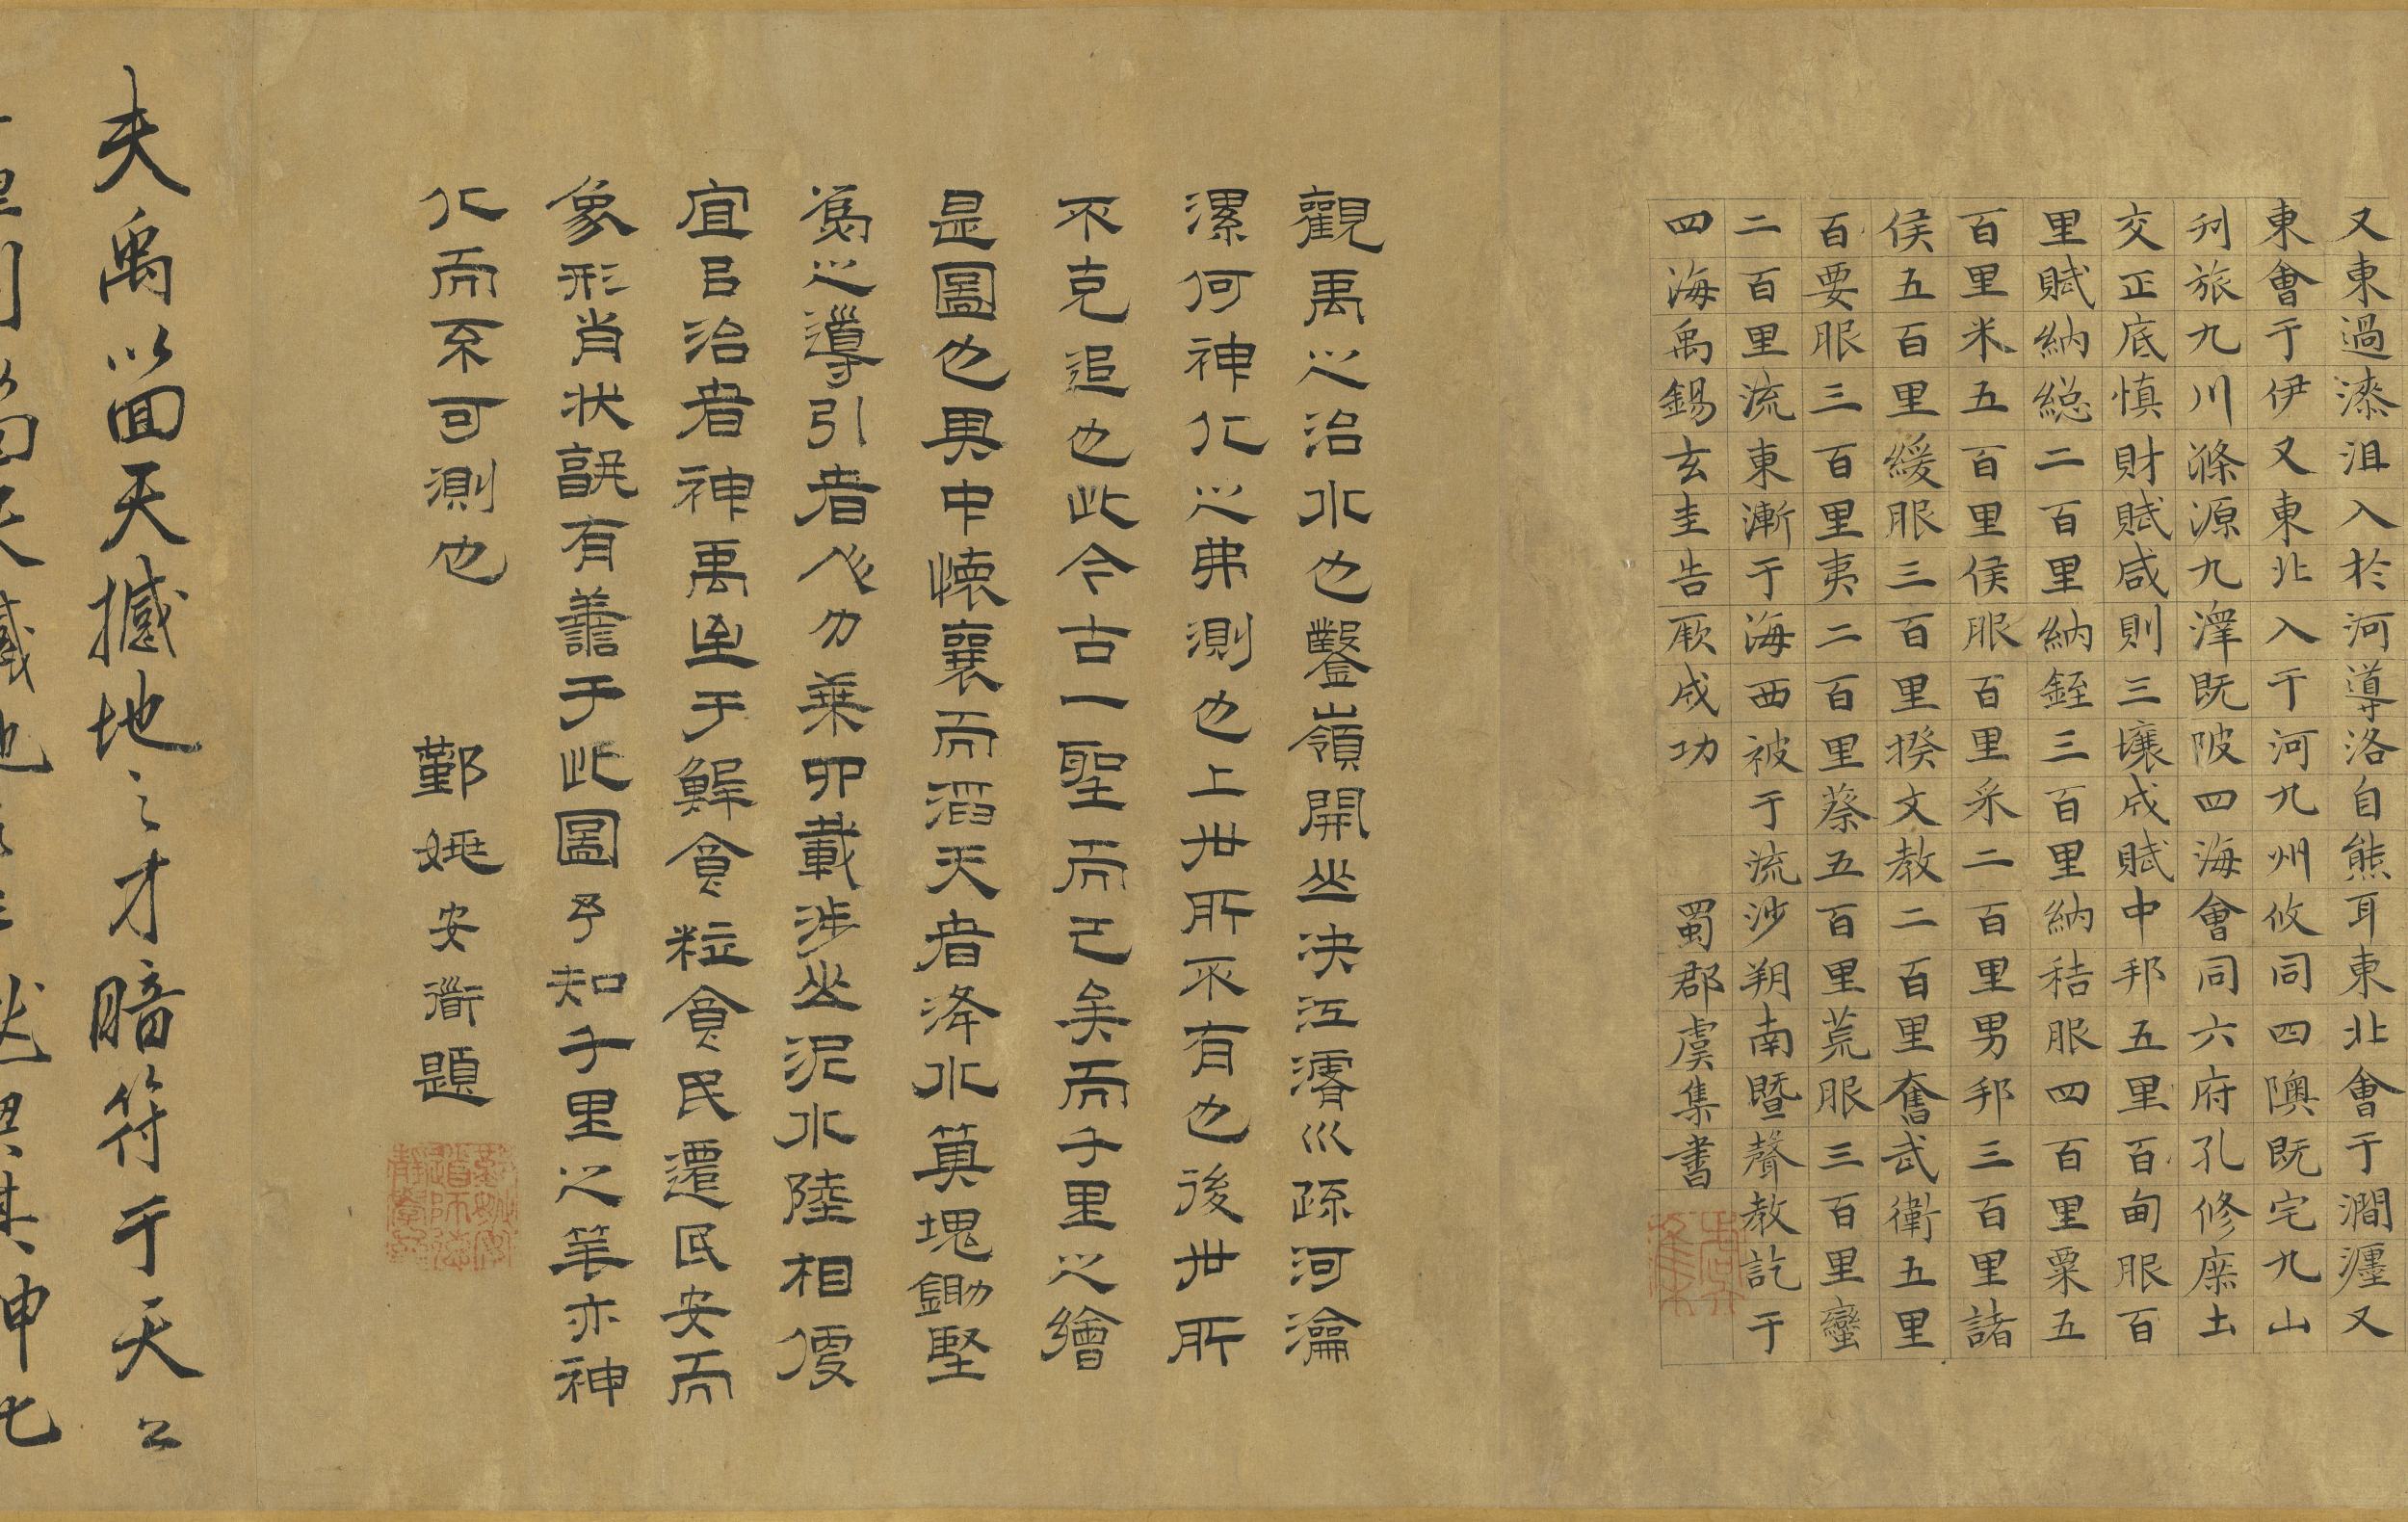 又東過漆沮入於河導洛自熊耳東北會于澗瀍又
東會于伊又東北入于河九州攸同四隩既宅九山
刋旅九川滌源九澤既陂四海會同六府孔修庶土
交正底慎財賦咸則三壤成賦中邦五里百甸服百
里賦納緫二百里納銍三百里納秸服四百里粟五
百里米五百里侯服百里采二百里男邦三百里諸
侯五百里綏服三百里揆文教二百里奮武衛五里
百要服三百里夷二百里蔡五百里荒服三百里蠻
二百里流東漸于海西被于流沙朔南暨聲教訖于
四海禹錫玄圭告厥成功 蜀郡虞集書
虞集
觀禹之治水也鑿嶺開山決江濬巛疏河瀹
漯何神化之弗測也上世所不有也後世所
不克追也此今古一聖而已矣而千里之繪
是圖也其中懷襄而滔天者洚水莫塊鋤墾
爲之導引者人力桒卯載涉山泥水陸相便
宜㠯治者神禹至于鮮食粒食民遷民安而
象形肖状誂有善于此圖乎知千里之筆亦神
化而不可測也
鄞姚安衜題
夫禹以面天撼地之才暗符于天公